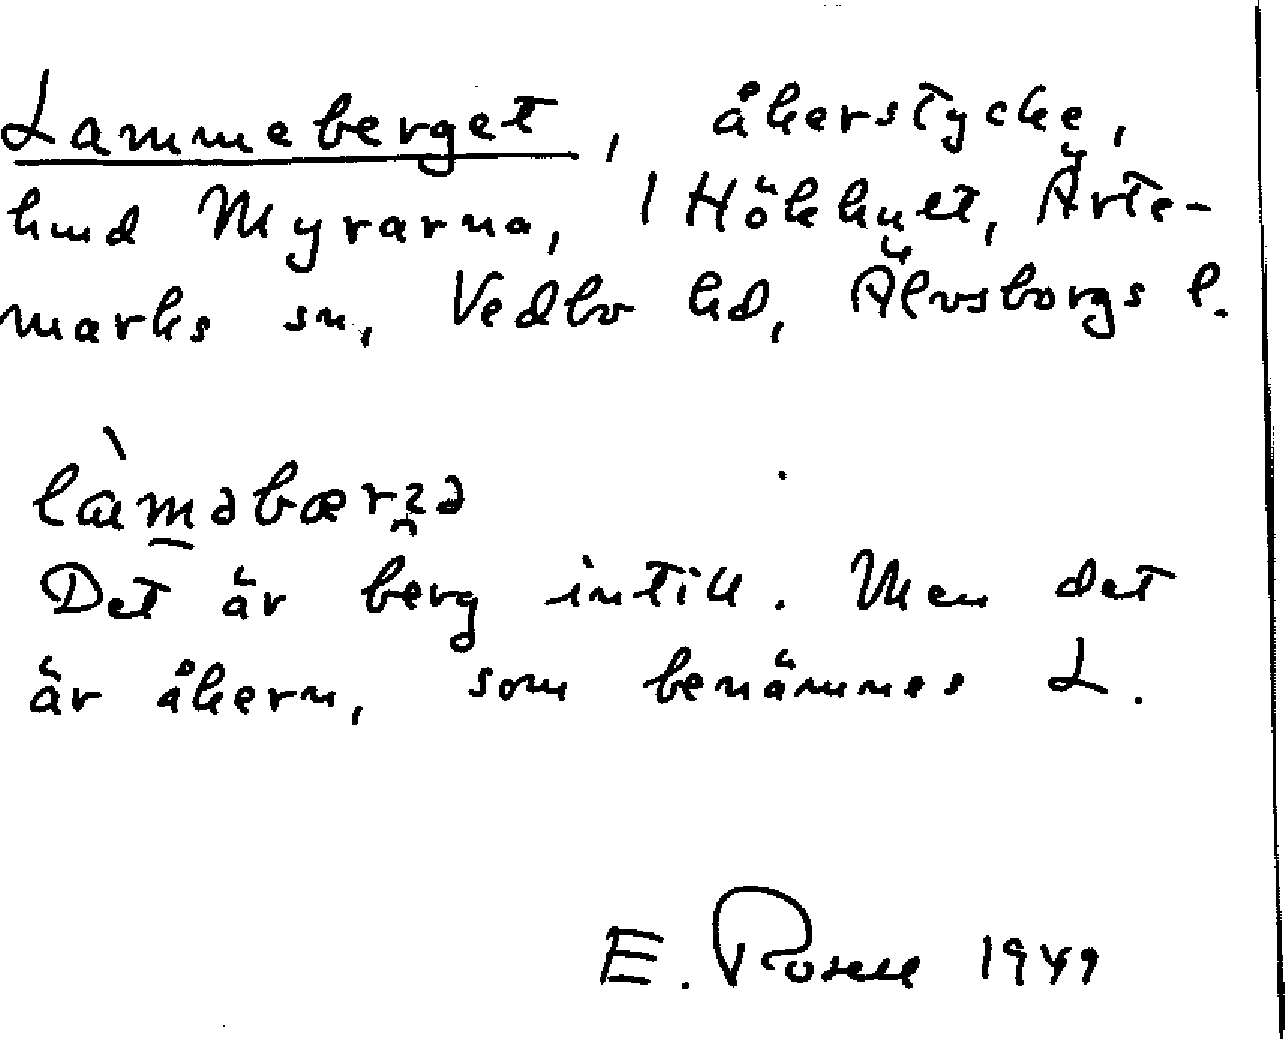 Lammeberget, åkerstycke,
hmd Myrarna, 1 Hökhult, Ärte-
marks sn, Vedbo hd, Älvsborgs l.
làməbærʒə
Det är berg intill. Men det
är åkern, som benämnes L.
E. Rosell 1949